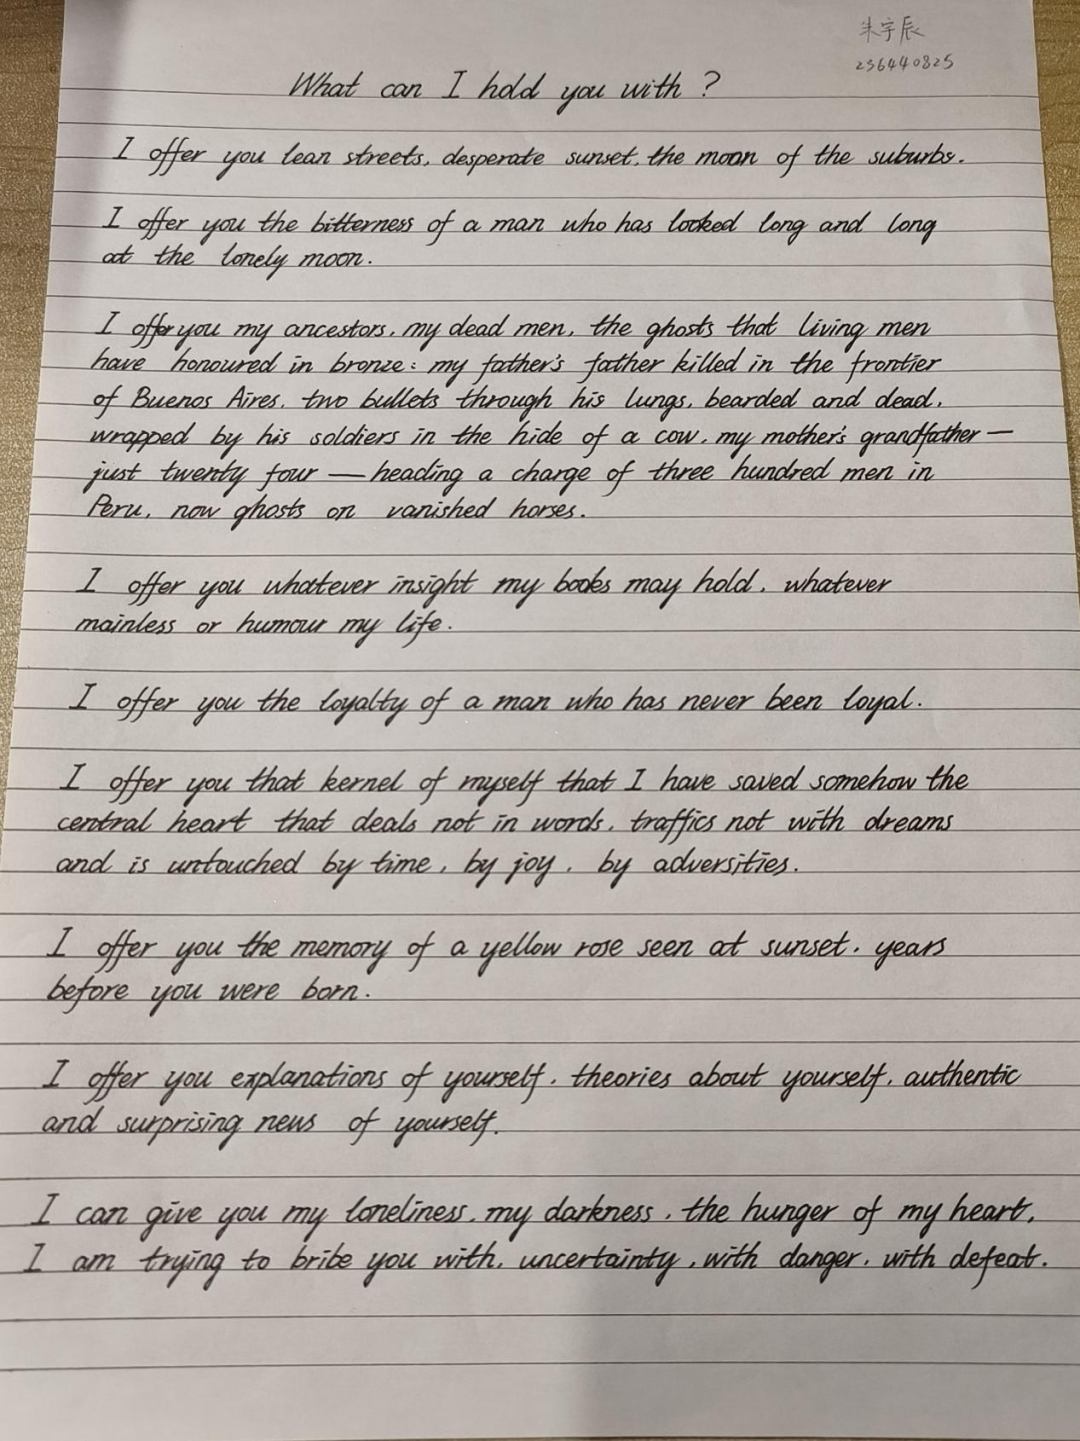 朱宇辰
236440825
What can I hold you with ?
I offer you lean streets, desperate sunset, the moon of the suburbs.
I offer you the bitterness of a man who has looked long and long
at the lonely moon.
I offer you my ancestors, my dead men, the ghosts that living men
have honoured in bronze : my father's father killed in the frontier
of Buenos Aires, two bullets through his lungs, bearded and dead,
wrapped by his soldiers in the hide of a cow, my mother's grandfather —
just twenty four — heading a charge of three hundred men in
Peru, now ghosts on vanished horses.
I offer you whatever insight my books may hold, whatever
mainless or humour my life.
I offer you the loyalty of a man who has never been loyal.
I offer you that kernel of myself that I have saved somehow the
central heart that deals not in words, traffics not with dreams
and is untouched by time, by joy, by adversities.
I offer you the memory of a yellow rose seen at sunset, years
before you were born.
I offer you explanations of yourself, theories about yourself, authentic
and surprising news of yourself.
I can give you my loneliness, my darkness, the hunger of my heart,
I am trying to bribe you with, uncertainty, with danger, with defeat.